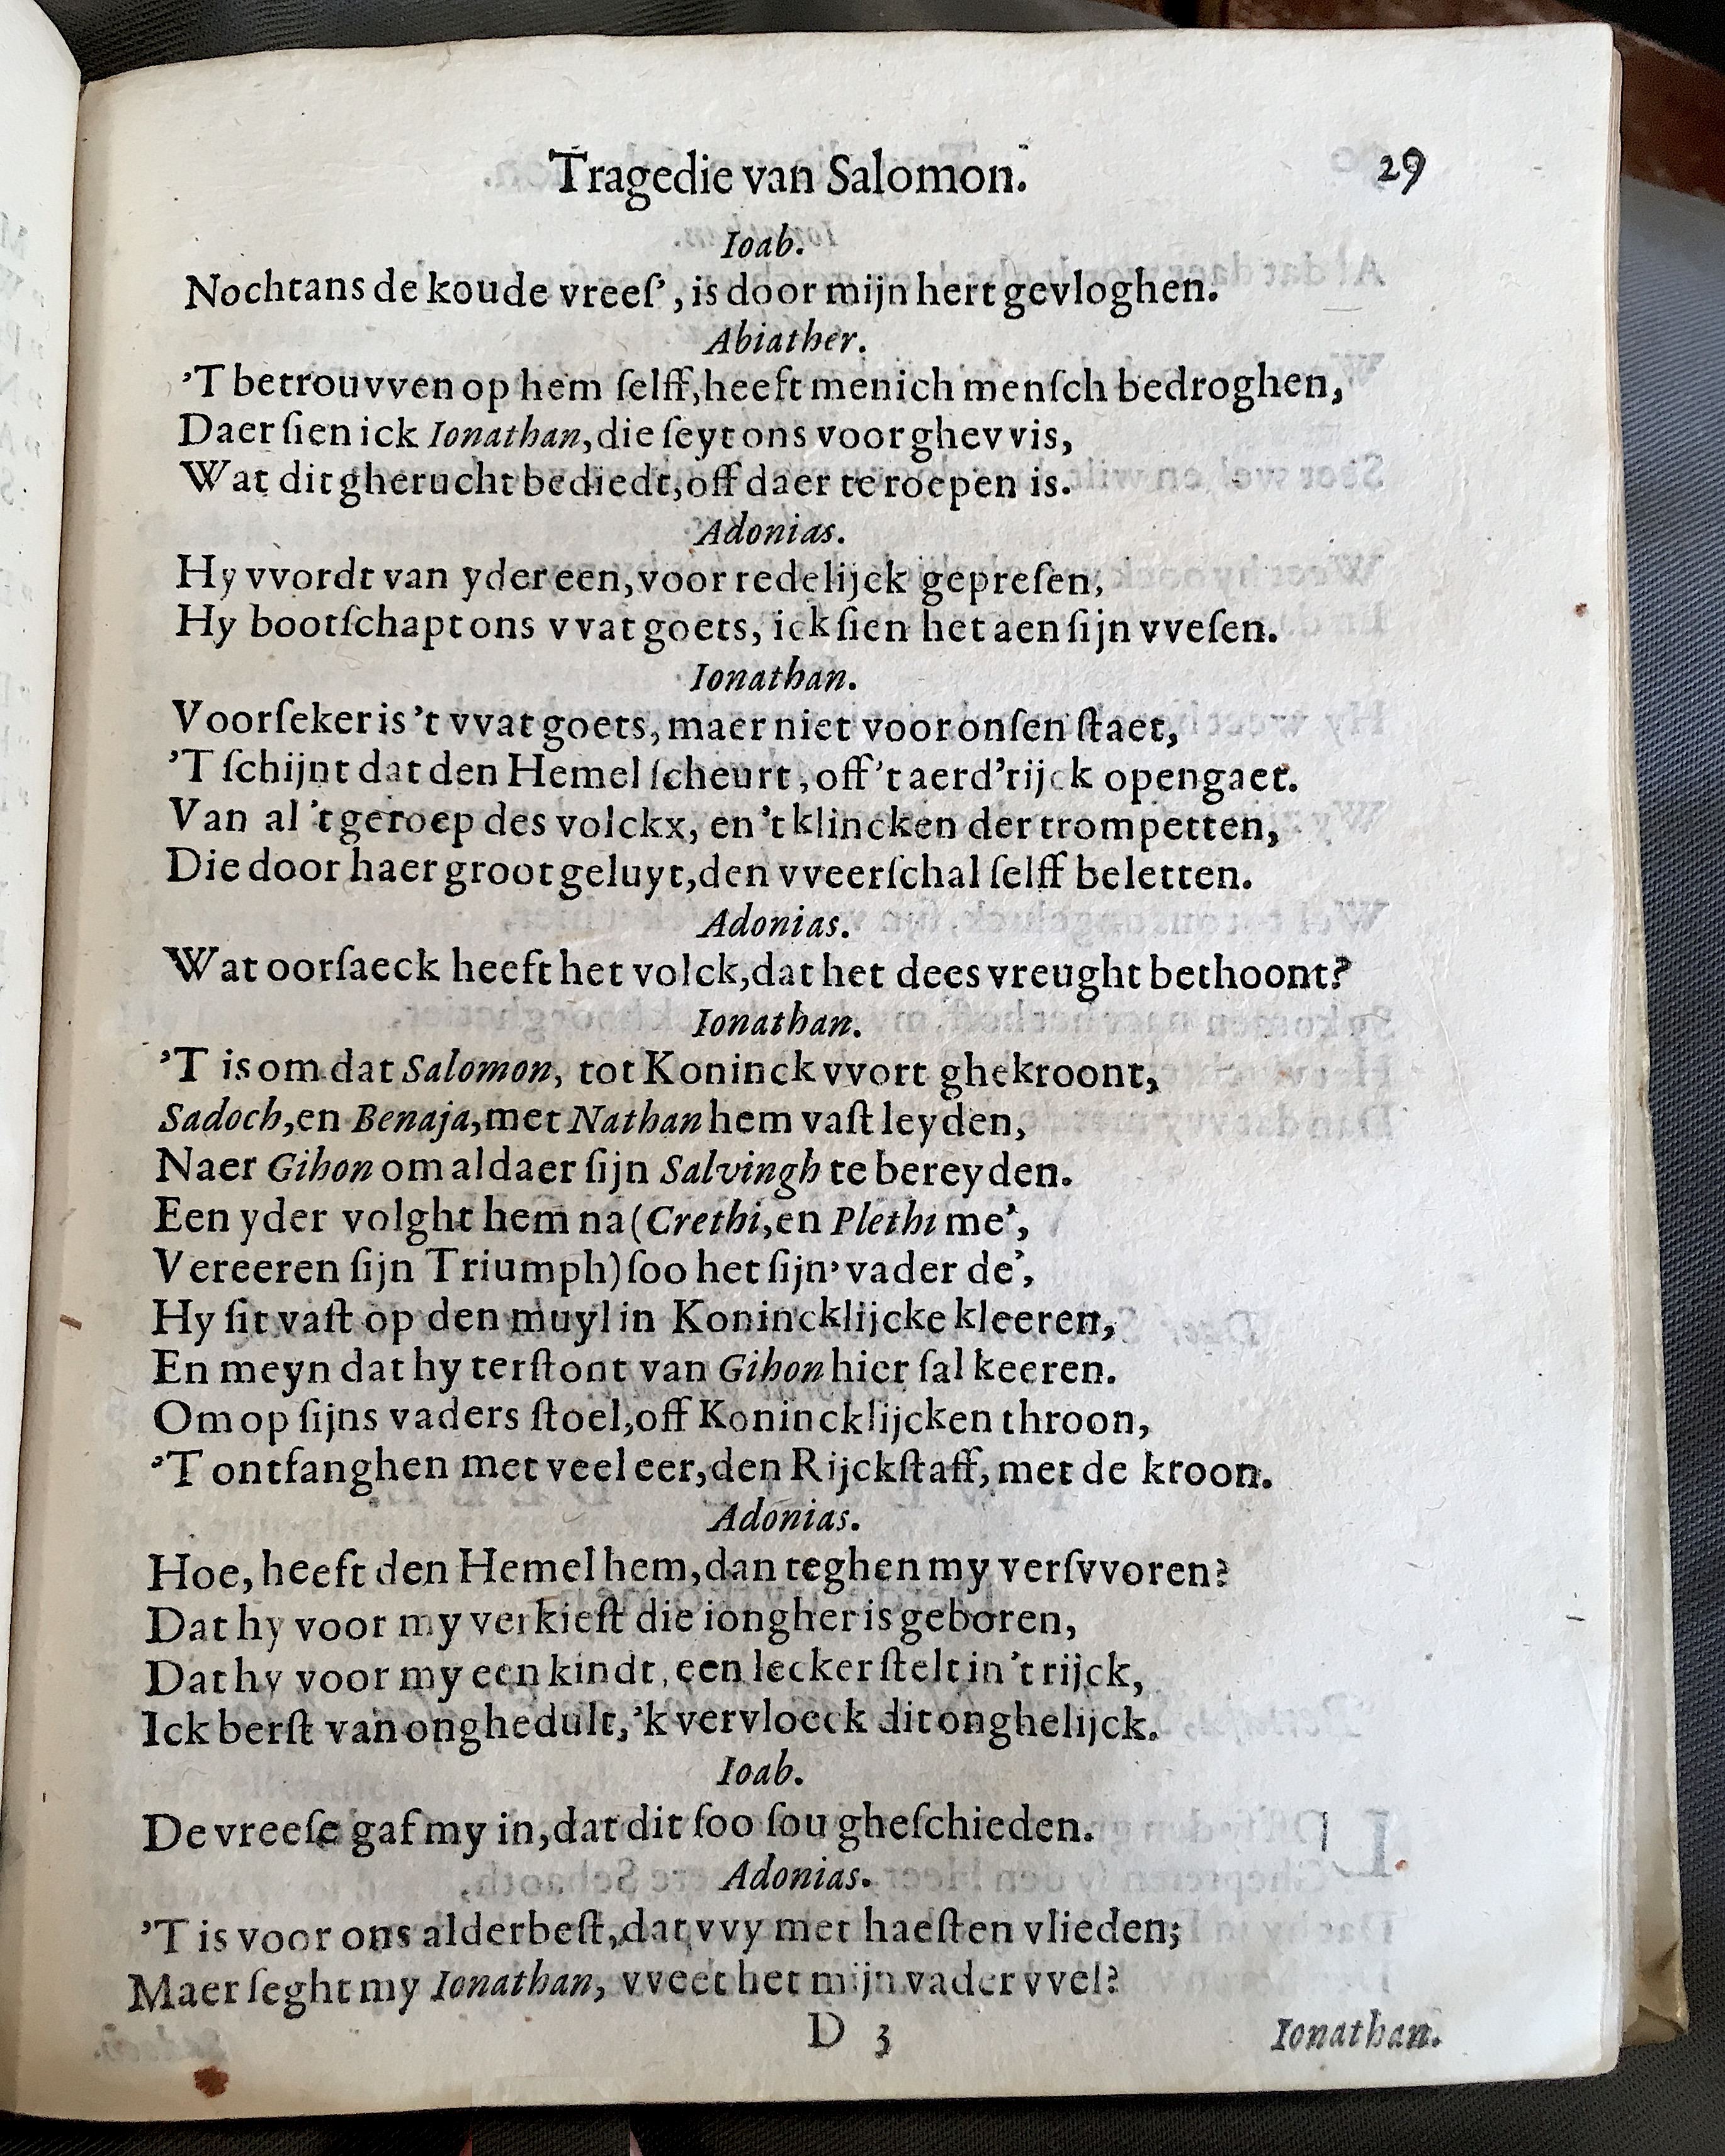 Tragedie van Salomon. 29
Ioab.
Nochtans de koude vreeſ’, is door mijn hert gevloghen.
Abiather.
’T betrouvven op hem ſelff, heeft menich menſch bedroghen,
Daer ſien ick Ionathan, die ſeyt ons voor ghevvis,
Wat dit gherucht bediedt, off daer te roepen is.
Adonias.
Hy vvordt van yder een, voor redelijck gepreſen,
Hy bootſchapt ons vvat goets, ick ſien het aen ſijn vveſen.
Ionathan.
Voorſeker is ’t vvat goets, maer niet voor onſen ſtaet,
’T ſchijnt dat den Hemel ſcheurt, off ’t aerd’rijck opengaet.
Van al ’t geroep des volckx, en ’t klincken der trompetten,
Die door haer groot geluyt, den vveerſchal ſelff beletten.
Adonias.
Wat oorſaeck heeft het volck, dat het dees vreught bethoont?
Ionathan.
’T is om dat Salomon, tot Koninck vvort ghekroont,
Sadoch, en Benaja, met Nathan hem vaſt leyden,
Naer Gihon om aldaer ſijn Salvingh te bereyden.
Een yder volght hem na (Crethi, en Plethi me’,
Vereeren ſijn Triumph) ſoo het ſijn’ vader de’,
Hy ſit vaſt op den muyl in Konincklijcke kleeren,
En meyn dat hy terſtont van Gihon hier ſal keeren.
Om op ſijns vaders ſtoel, off Konincklijcken throon,
’T ontfanghen met veel eer, den Rijckſtaff, met de kroon.
Adonias.
Hoe, heeft den Hemel hem, dan teghen my verſvvoren?
Dat hy voor my verkieſt die iongher is geboren,
Dat hy voor my een kindt, een lecker ſtelt in ’t rijck,
Ick berſt van onghedult, ’k vervloeck dit onghelijck.
Ioab.
De vreeſe gaf my in, dat dit ſoo ſou gheſchieden.
Adonias.
’T is voor ons alderbeſt, dat vvy met haeſten vlieden;
Maer ſeght my Ionathan, vveet het mijn vader vvel?
D 3 Ionathan.